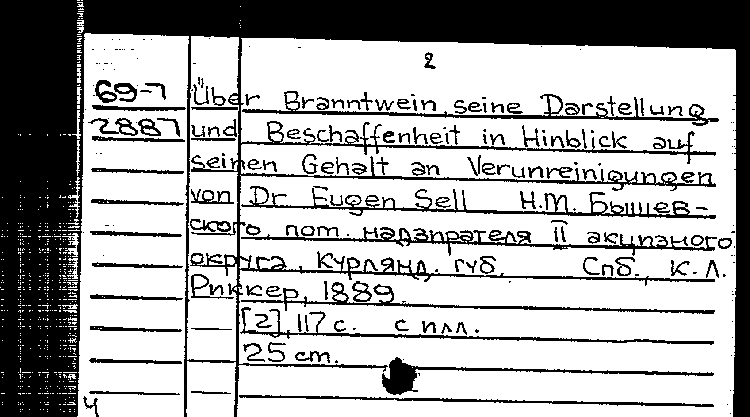 2
69-7 Über Branntwein, seine Darstellung
2887 und Beschaffenheit in Hinblick auf
seinen Gehalt an Verunreinigungen
von Dr Eugen Sell Н.М. Бышев-
ского, пом. надзирателя II акцизного
округа, Курлянд. губ. Спб., К.Л.
Риккер, 1889.
[2], 117 с. с илл.
25 cm.
4